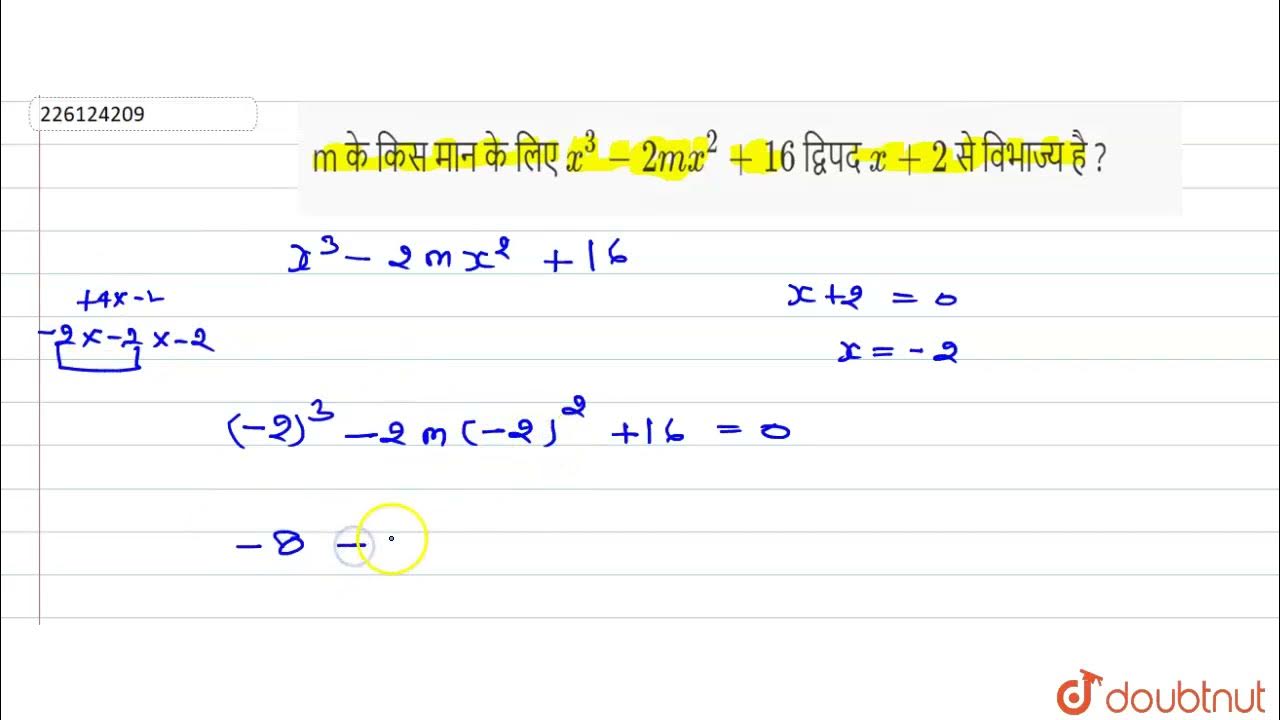 226124209
m के किस मान के लिए x³ − 2mx² + 16 द्विपद x + 2 से विभाज्य है ?
x³ − 2mx² + 16
x + 2 = 0
+4x−2
−2x−2x−2
x = −2
(−2)³ − 2m(−2)² + 16 = 0
−8 −
doubtnut